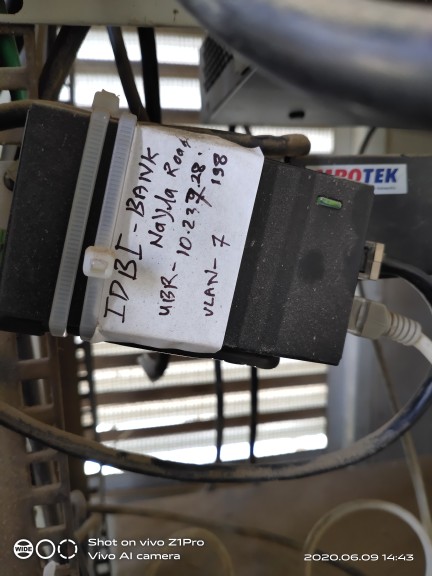 IDBI-BANK
Nayla Road
UBR-10.237.28.
198
VLAN-7
ROTEK
WIDE
Shot on vivo Z1Pro
Vivo AI camera
2020.06.09 14:43